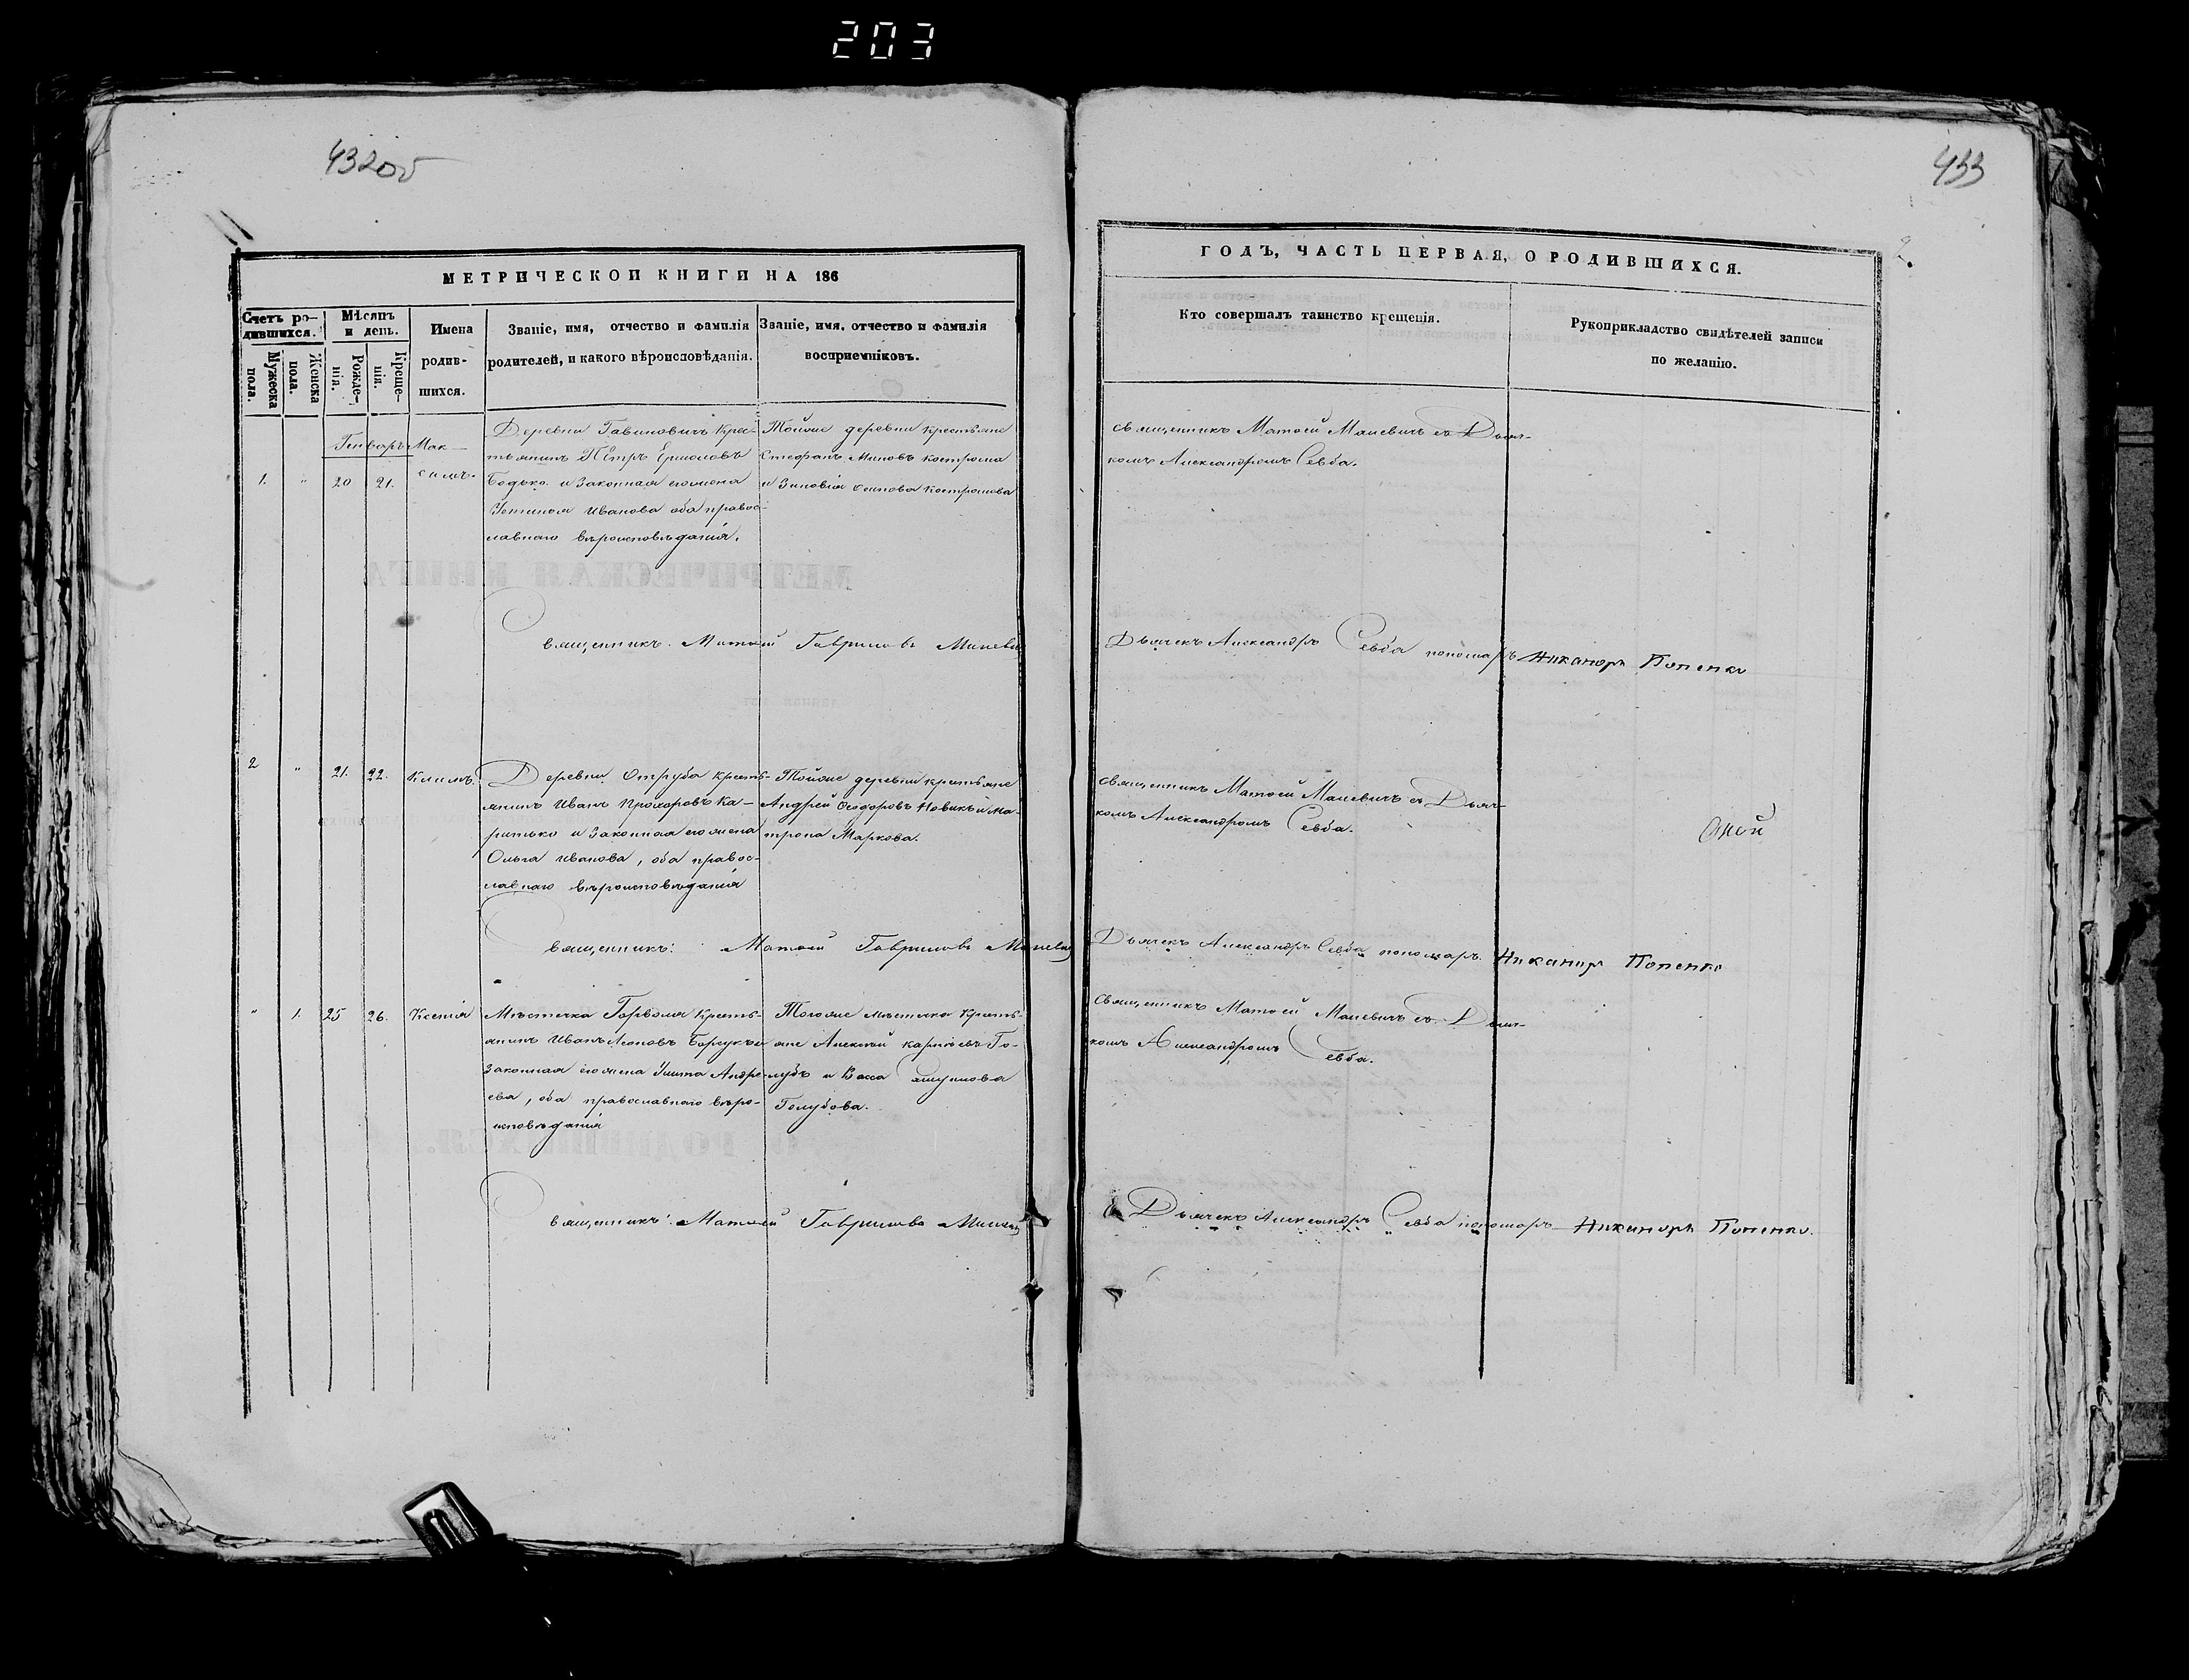 203
432об
433
2.
МЕТРИЧЕСКОЙ КНИГИ НА 186
ГОДЪ, ЧАСТЬ ПЕРВАЯ, О РОДИВШИХСЯ.
Счетъ ро-
дившихся.
Мужеска
пола.
Женска
пола.
Мѣсяцъ
и день.
Рожде-
нія.
Креще-
нія.
Имена
родив-
шихся.
Званіе, имя, отчество и фамилія
родителей, и какого вѣроисповѣданія.
Званіе, имя, отчество и фамилія
восприемніковъ.
Кто совершалъ таинство крещенія.
Рукоприкладство свидѣтелей записи
по желанію.
Генварь
1. " 20 21.
Мак-
симъ.
Деревни Гавиновичъ Крес-
тьянинъ Пётръ Ермоловъ
Бодько и Законная его жена
Устинья Иванова оба правос-
лавнаго вѣроисповѣданія.
Тойже деревни крестьяне
Стефанъ Миновъ Кострома
и Зиновія Осипова Костромова
Священникъ Матѳей Маневичъ съ Дьяч-
комъ Александромъ Севба.
Священникъ Матѳей Гавриловъ Маневи
Дьячекъ Александръ Севба пономарь Никаноръ Попенко
2 " 21. 22. Климъ.
Деревни Отруба кресть-
янинъ Иванъ Прохоровъ Ка-
ратько и Законная его жена
Ольга Иванова, оба правос-
лавнаго вѣроисповѣданія
Тойже деревни крестьяне
Андрей Ѳеодоровъ Новикъ и Ма-
трона Маркова.
Священникъ Матѳей Маневичъ съ Дьяч-
комъ Александромъ Севба.
Священникъ: Матѳей Гавриловъ Маневич
Дьячекъ Александръ Севба пономарь Никаноръ Попенко
" 1. 25 26. Ксенія
Мѣстечка Горволя Кресть-
янинъ Иванъ Леоновъ и
Законная его жена Улита Андре-
ева, оба православнаго вѣро-
исповѣданія
Тогоже мѣстечка Кресть-
яне Алексѣй Карпіевъ Го-
лубъ и Васса
Голубова.
Священникъ Матѳей Маневичъ съ Дьяч-
комъ Александромъ Севба.
Священникъ: Матѳей Гавриловъ Маневич
Дьячекъ Александръ Севба пономарь Никаноръ Попенко.